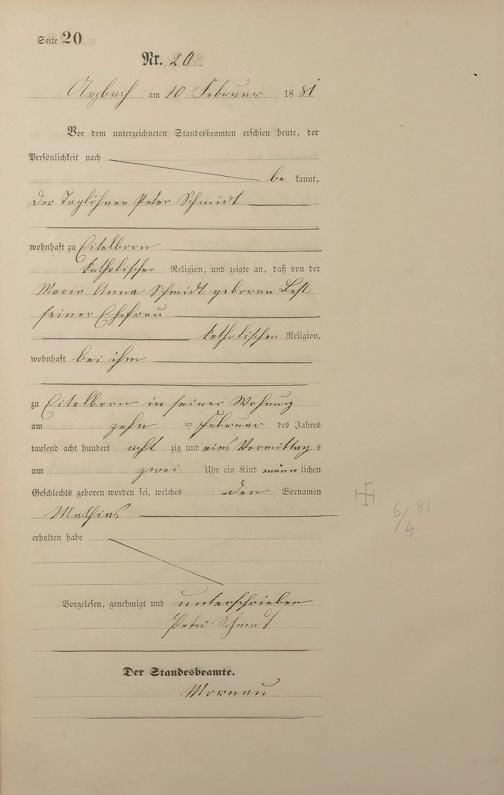 Seite 20
Nr. 20
Arzbach am 10 Februar 1881
Vor dem unterzeichneten Standesbeamten erschien heute, der
Persönlichkeit nach
be kannt,
der Taglöhner Peter Schmidt
wohnhaft zu Eitelborn
katholischer Religion, und zeigte an, daß von der
Maria Anna Schmidt geboren
seiner Ehefrau
katholischen Religion,
wohnhaft bei ihm
zu Eitelborn in seiner Wohnung
am zehn ten Februar des Jahres
tausend acht hundert acht zig und eins Vormittag s
um zwei Uhr ein Kind männ lichen
Geschlechts geboren worden sei, welches den Vornamen
Mathias
erhalten habe
6/4 81
Vorgelesen, genehmigt und unterschrieben
Peter Schmidt
Der Standesbeamte.
Mornau